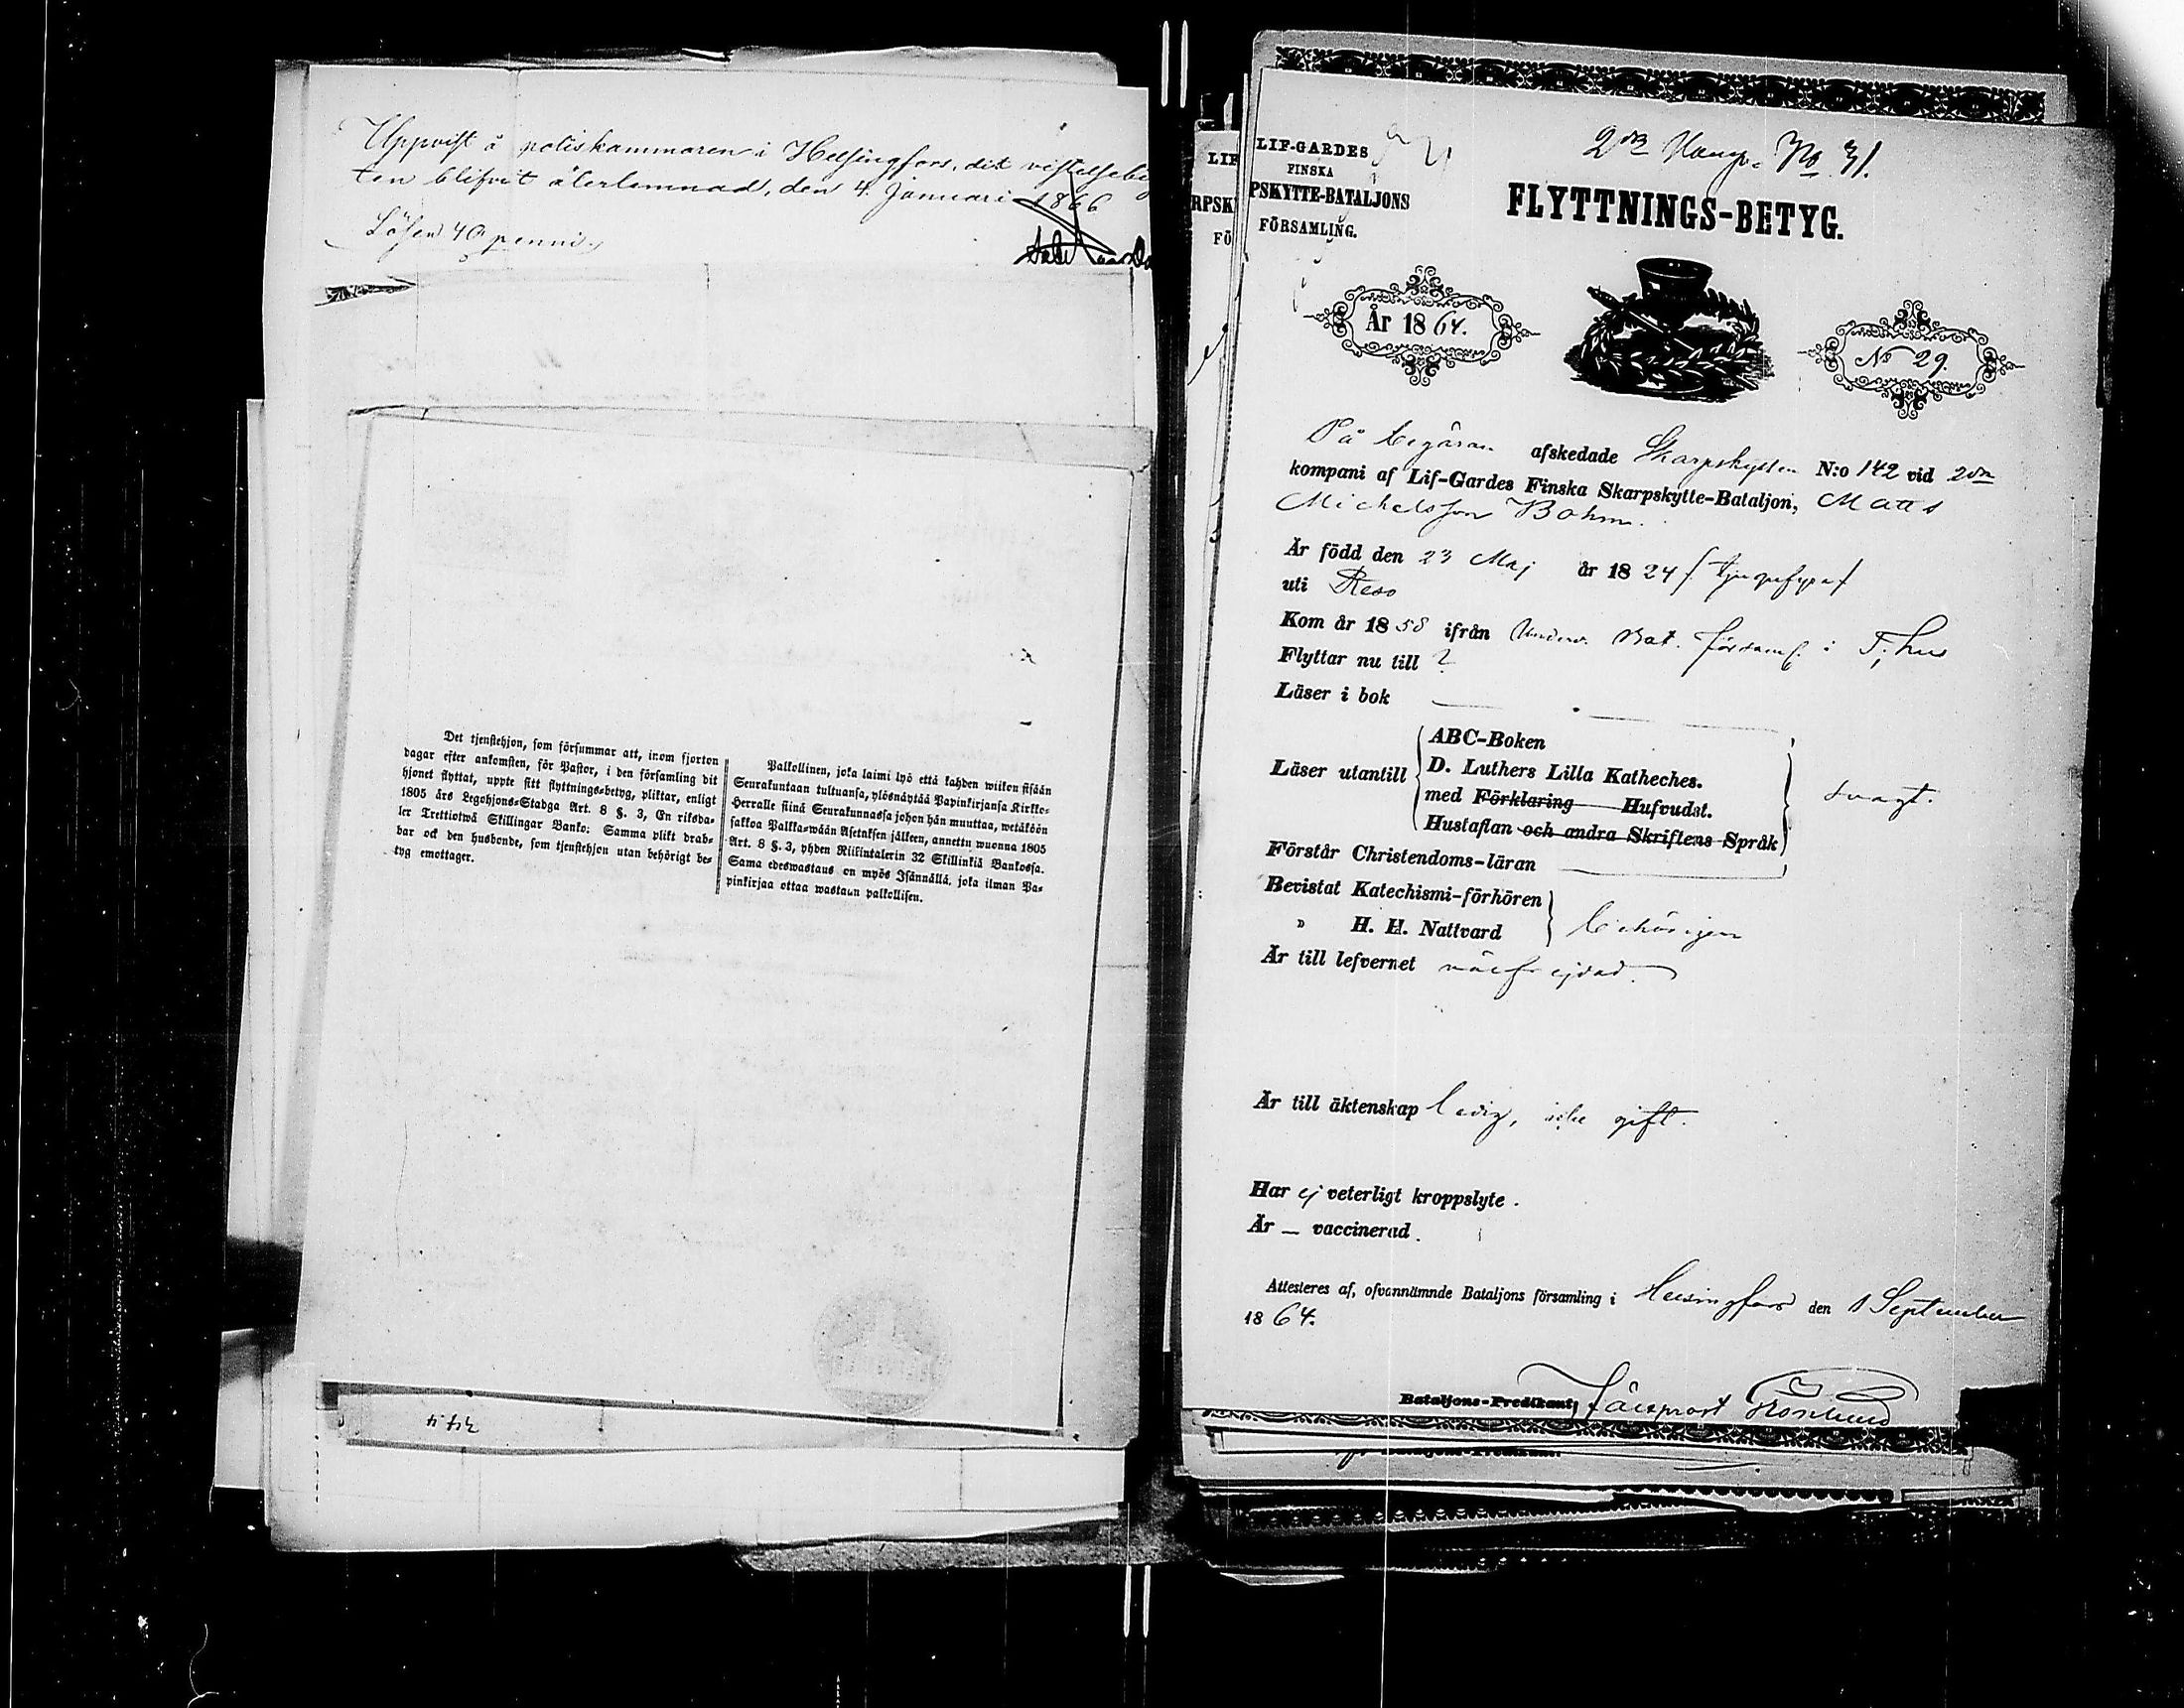 Uppvist å poliskammaren i Helsingfors, dit vistelsebe
ten blifvit återlemnad, den 4. Januari 1866
Lösen 40 penni.
Det tjenstehjon, som försummar att, inom fjorton
dagar efter ankomsten, för Pastor, i den församling dit
hjonet flyttat, uppte sitt flyttnings-betyg, pliktar, enligt
1805 års Legohjons-Stadga Art. 8 §. 3, En riksda-
ler Trettiotwå Skillingar Banko; Samma plikt drab-
bar ock den husbonde, som tjenstehjon utan behörigt be-
tyg emottager.
Palkollinen, joka laimi lyö että kahden wiikon sisään
Seurakuntaan tultuansa, ylösnäytää Papinkirjansa Kirkko-
Herralle siinä Seurakunnassa johon hän muuttaa, wetäköön
sakkoa Palkka-wään Asetuksen jälkeen, annettu wuonna 1805
Art. 8 §. 3, yhden Riikintalerin 32 Skillinkiä Bankossa.
Sama edeswastaus on myös Isännällä, joka ilman Pa-
pinkirjaa ottaa wastaan palkollisen.
LIF-GARDES
FINSKA
PSKYTTE-BATALJONS
FÖRSAMLING.
2dra Komp. No 31.
FLYTTNINGS-BETYG.
År 1864.
No 29.
På begäran afskedade Skarpskytten N:o 142 vid 2dra
kompani af Lif-Gardes Finska Skarpskytte-Bataljon, Matts
Michelsson Bohm.
Är född den 23 Maj år 1824 / tjugufyra /
uti Reso
Kom år 1858 ifrån Underv. Bat. församl. i T;hus
Flyttar nu till ?
Läser i bok
Läser utantill
ABC-Boken
D. Luthers Lilla Katheches.
med Förklaring Hufvudst.
Hustaflan och andra Skriftens Språk
svagt.
Förstår Christendoms-läran
Bevistat Katechismi-förhören
" H. H. Nattvard
behörigen
Är till lefvernet välfrejdad.
Är till äktenskap ledig, icke gift.
Har ej veterligt kroppslyte.
Är — vaccinerad.
Attesteres af, ofvannämnde Bataljons församling i Helsingfors den 1 September
1864.
Bataljons-Predikant,